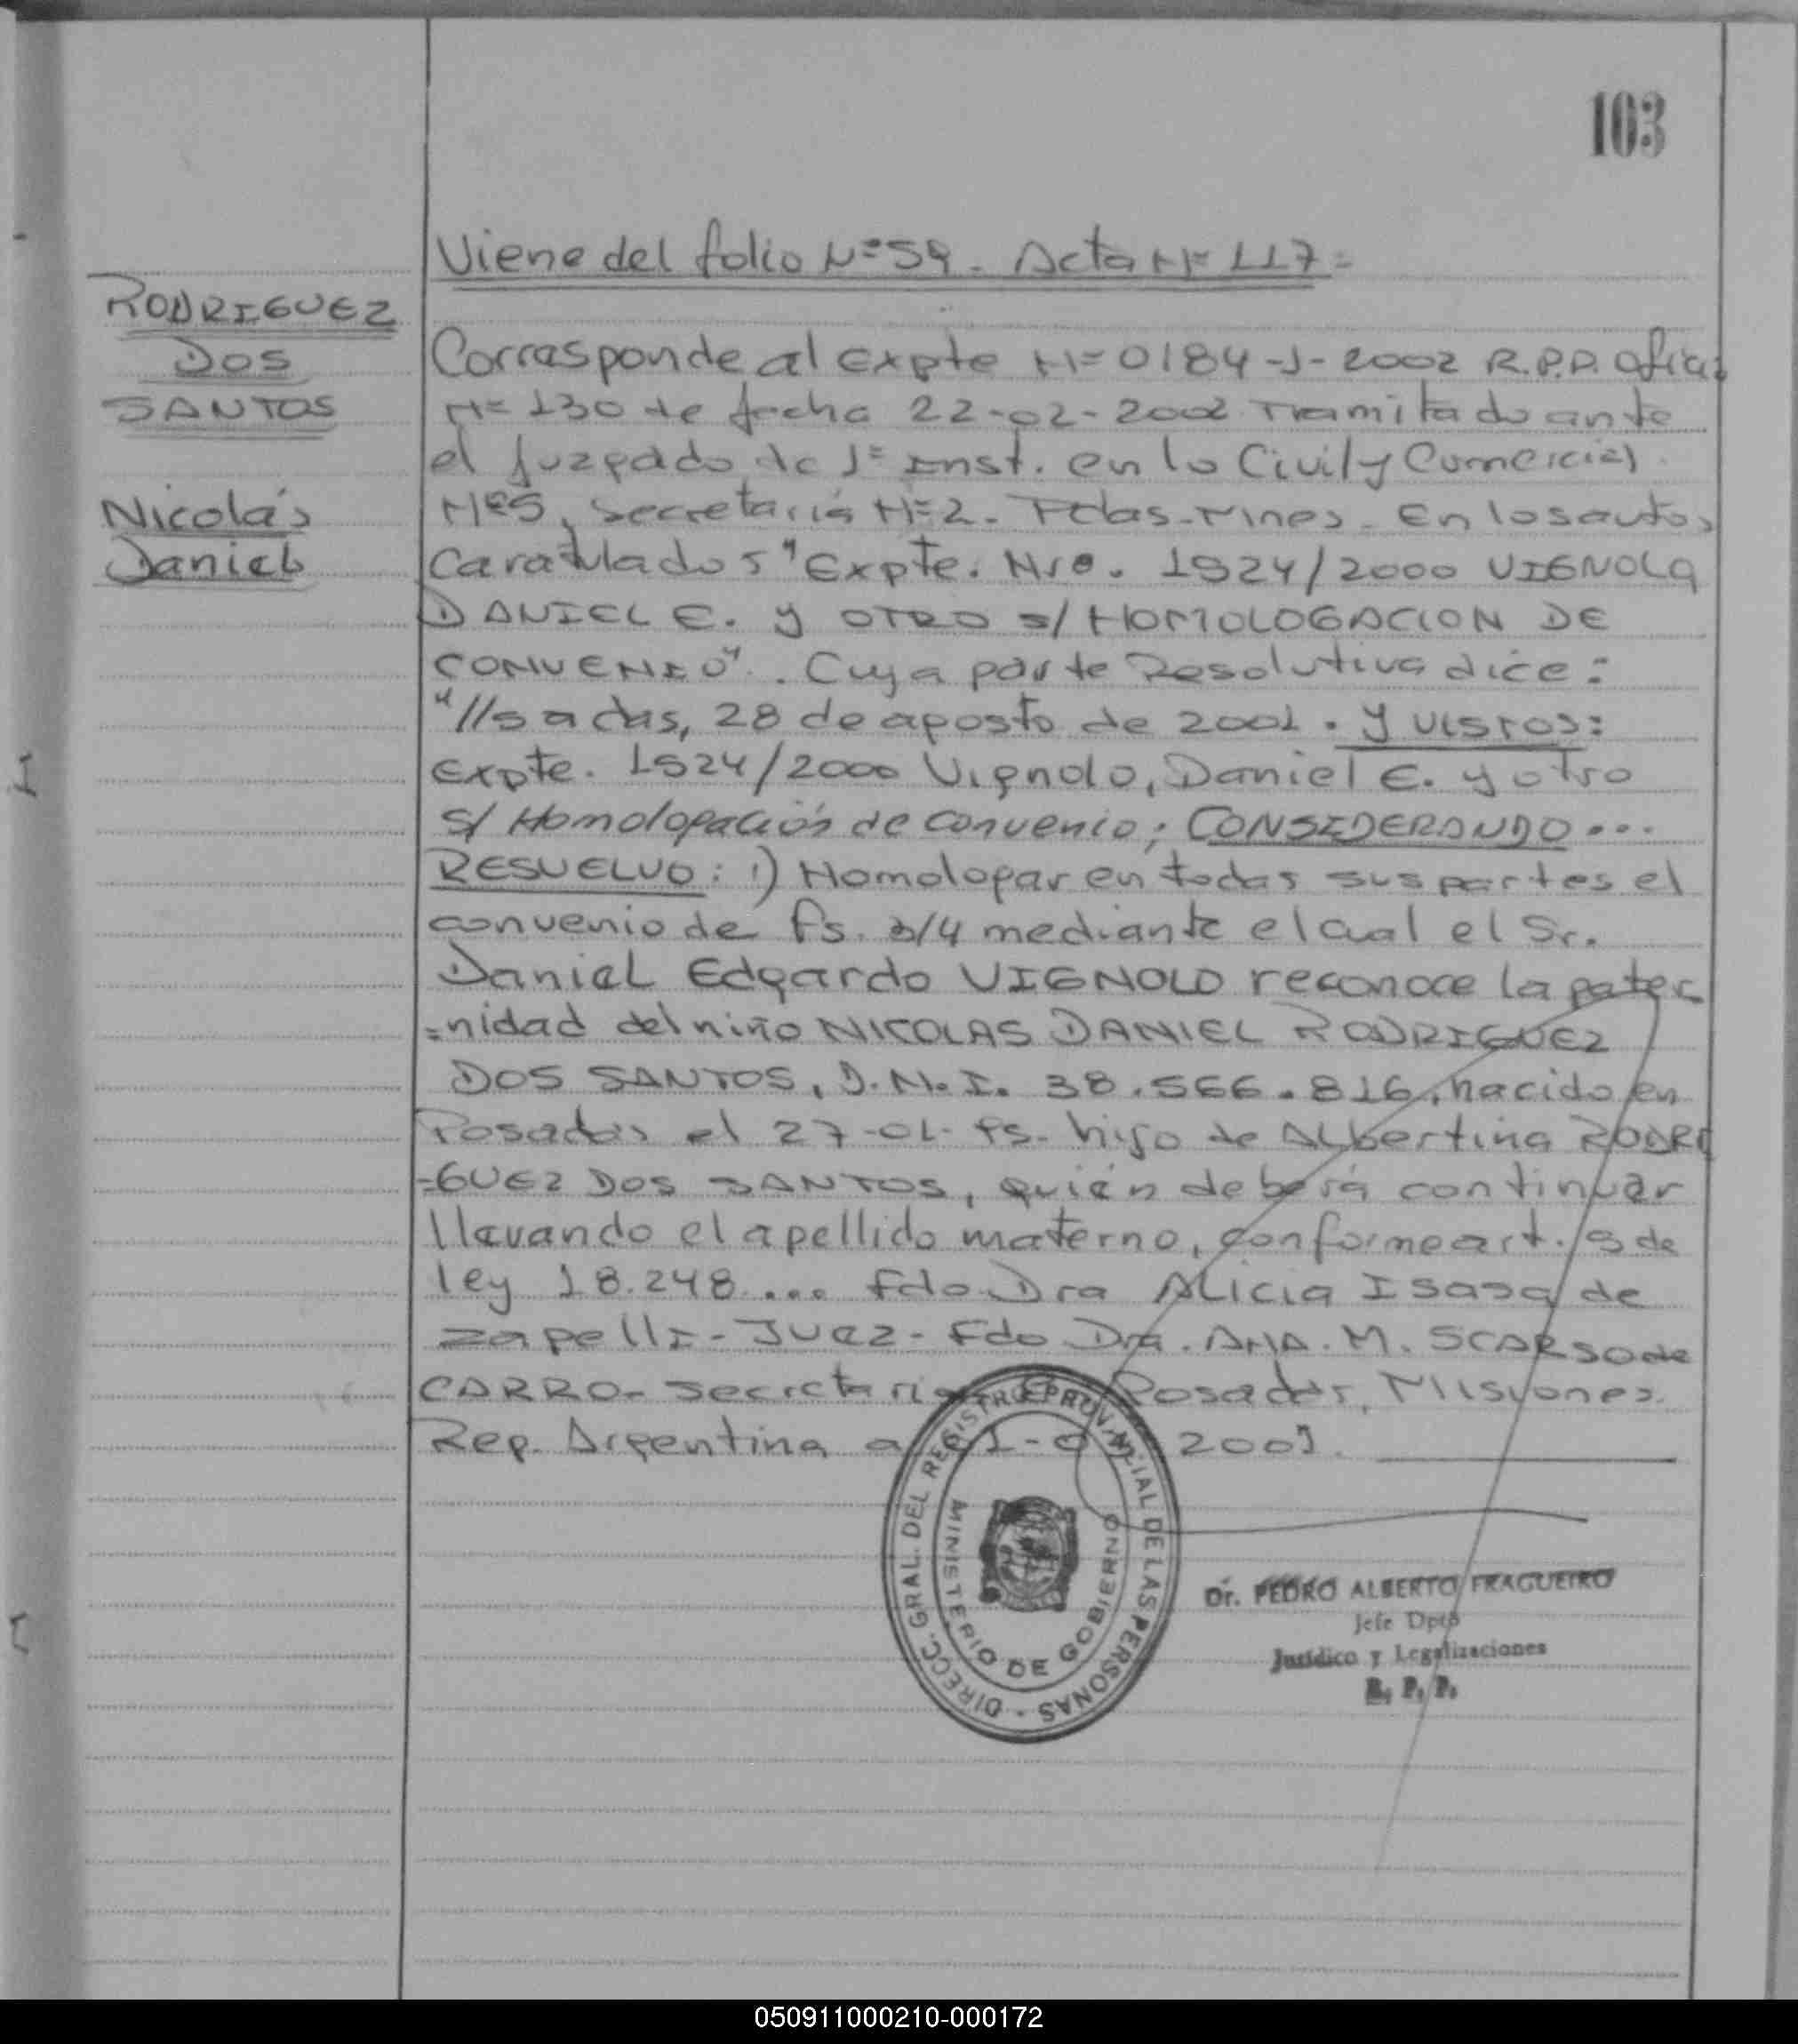 103
Viene del folio Nº 59. Acta Nº 117=
RODRIGUEZ
DOS
SANTOS
Nicolás
Daniel
Corresponde al Expte Nº 0184-J-2002 R.P.P. Oficio
Nº 130 de fecha 22-02-2002 Tramitado ante
el Juzgado de 1º Inst. en lo Civil y Comercial
Nº 5, Secretaría Nº 2. Pdas-Mnes. En los autos
Caratulados "Expte. Nro. 1924/2000 VIGNOLA
DANIEL E. y OTRO s/ HOMOLOGACION DE
CONVENIO". Cuya parte Resolutiva dice:
"//sadas, 28 de agosto de 2001. Y VISTOS:
Expte. 1924/2000 Vignolo, Daniel E. y otro
s/ Homologación de convenio; CONSIDERANDO...
RESUELVO: 1) Homologar en todas sus partes el
convenio de fs. 3/4 mediante el cual el Sr.
Daniel Edgardo VIGNOLO reconoce la pater
=nidad del niño NICOLAS DANIEL RODRIGUEZ
DOS SANTOS, D.N.I. 38.566.816, nacido en
Posadas el 27-01- hijo de Albertina RODRI
=GUEZ DOS SANTOS, quién deberá continuar
llevando el apellido materno, conforme art. 5 de
ley 18.248... Fdo Dra Alicia Isasa de
Zapelli-Juez- Fdo Dra. ANA. M. SCARSO de
CARRO- Secretaria Posadas, Misiones.
Rep. Argentina a
DIRECC. GRAL. DEL REGISTRO PROVINCIAL DE LAS PERSONAS -
MINISTERIO DE GOBIERNO
Dr. PEDRO ALBERTO FRAGUEIRO
Jefe Dpto
Jurídico y Legalizaciones
R. P. P.
050911000210-000172